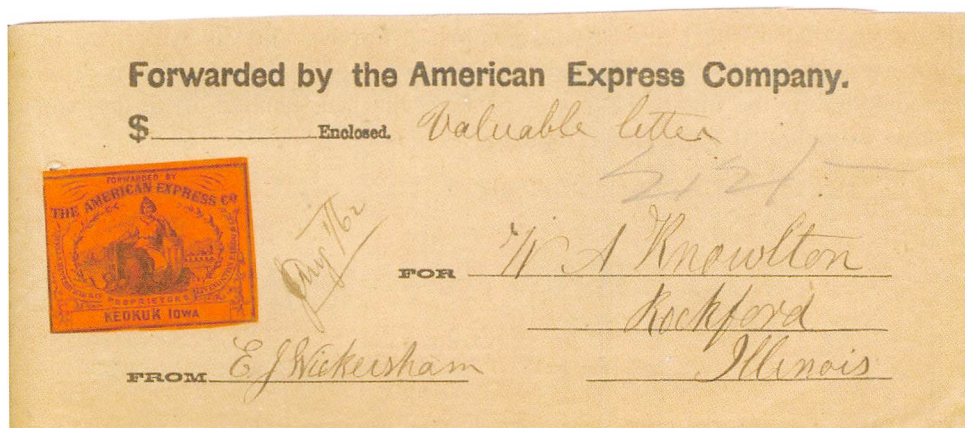 Forwarded by the American Express Company.
$ Enclosed. Valuable letter
FORWARDED BY
THE AMERICAN EXPRESS CO
PROPRIETORS
KEOKUK IOWA
FOR W A Knowlton
Rockford
Illinois
FROM E J Wickersham